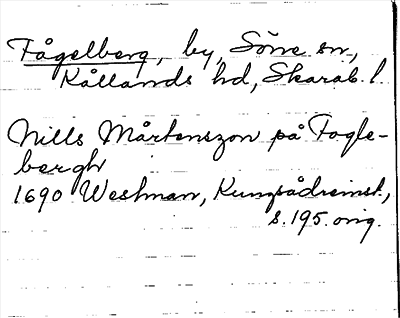 Fågelberg, by, Söne sn,
Kållands hd, Skarab. l.
Nills Mårtenszon på Fogle-
bergh
1690 Westman, Kungsådreinst,
s. 195. orig.